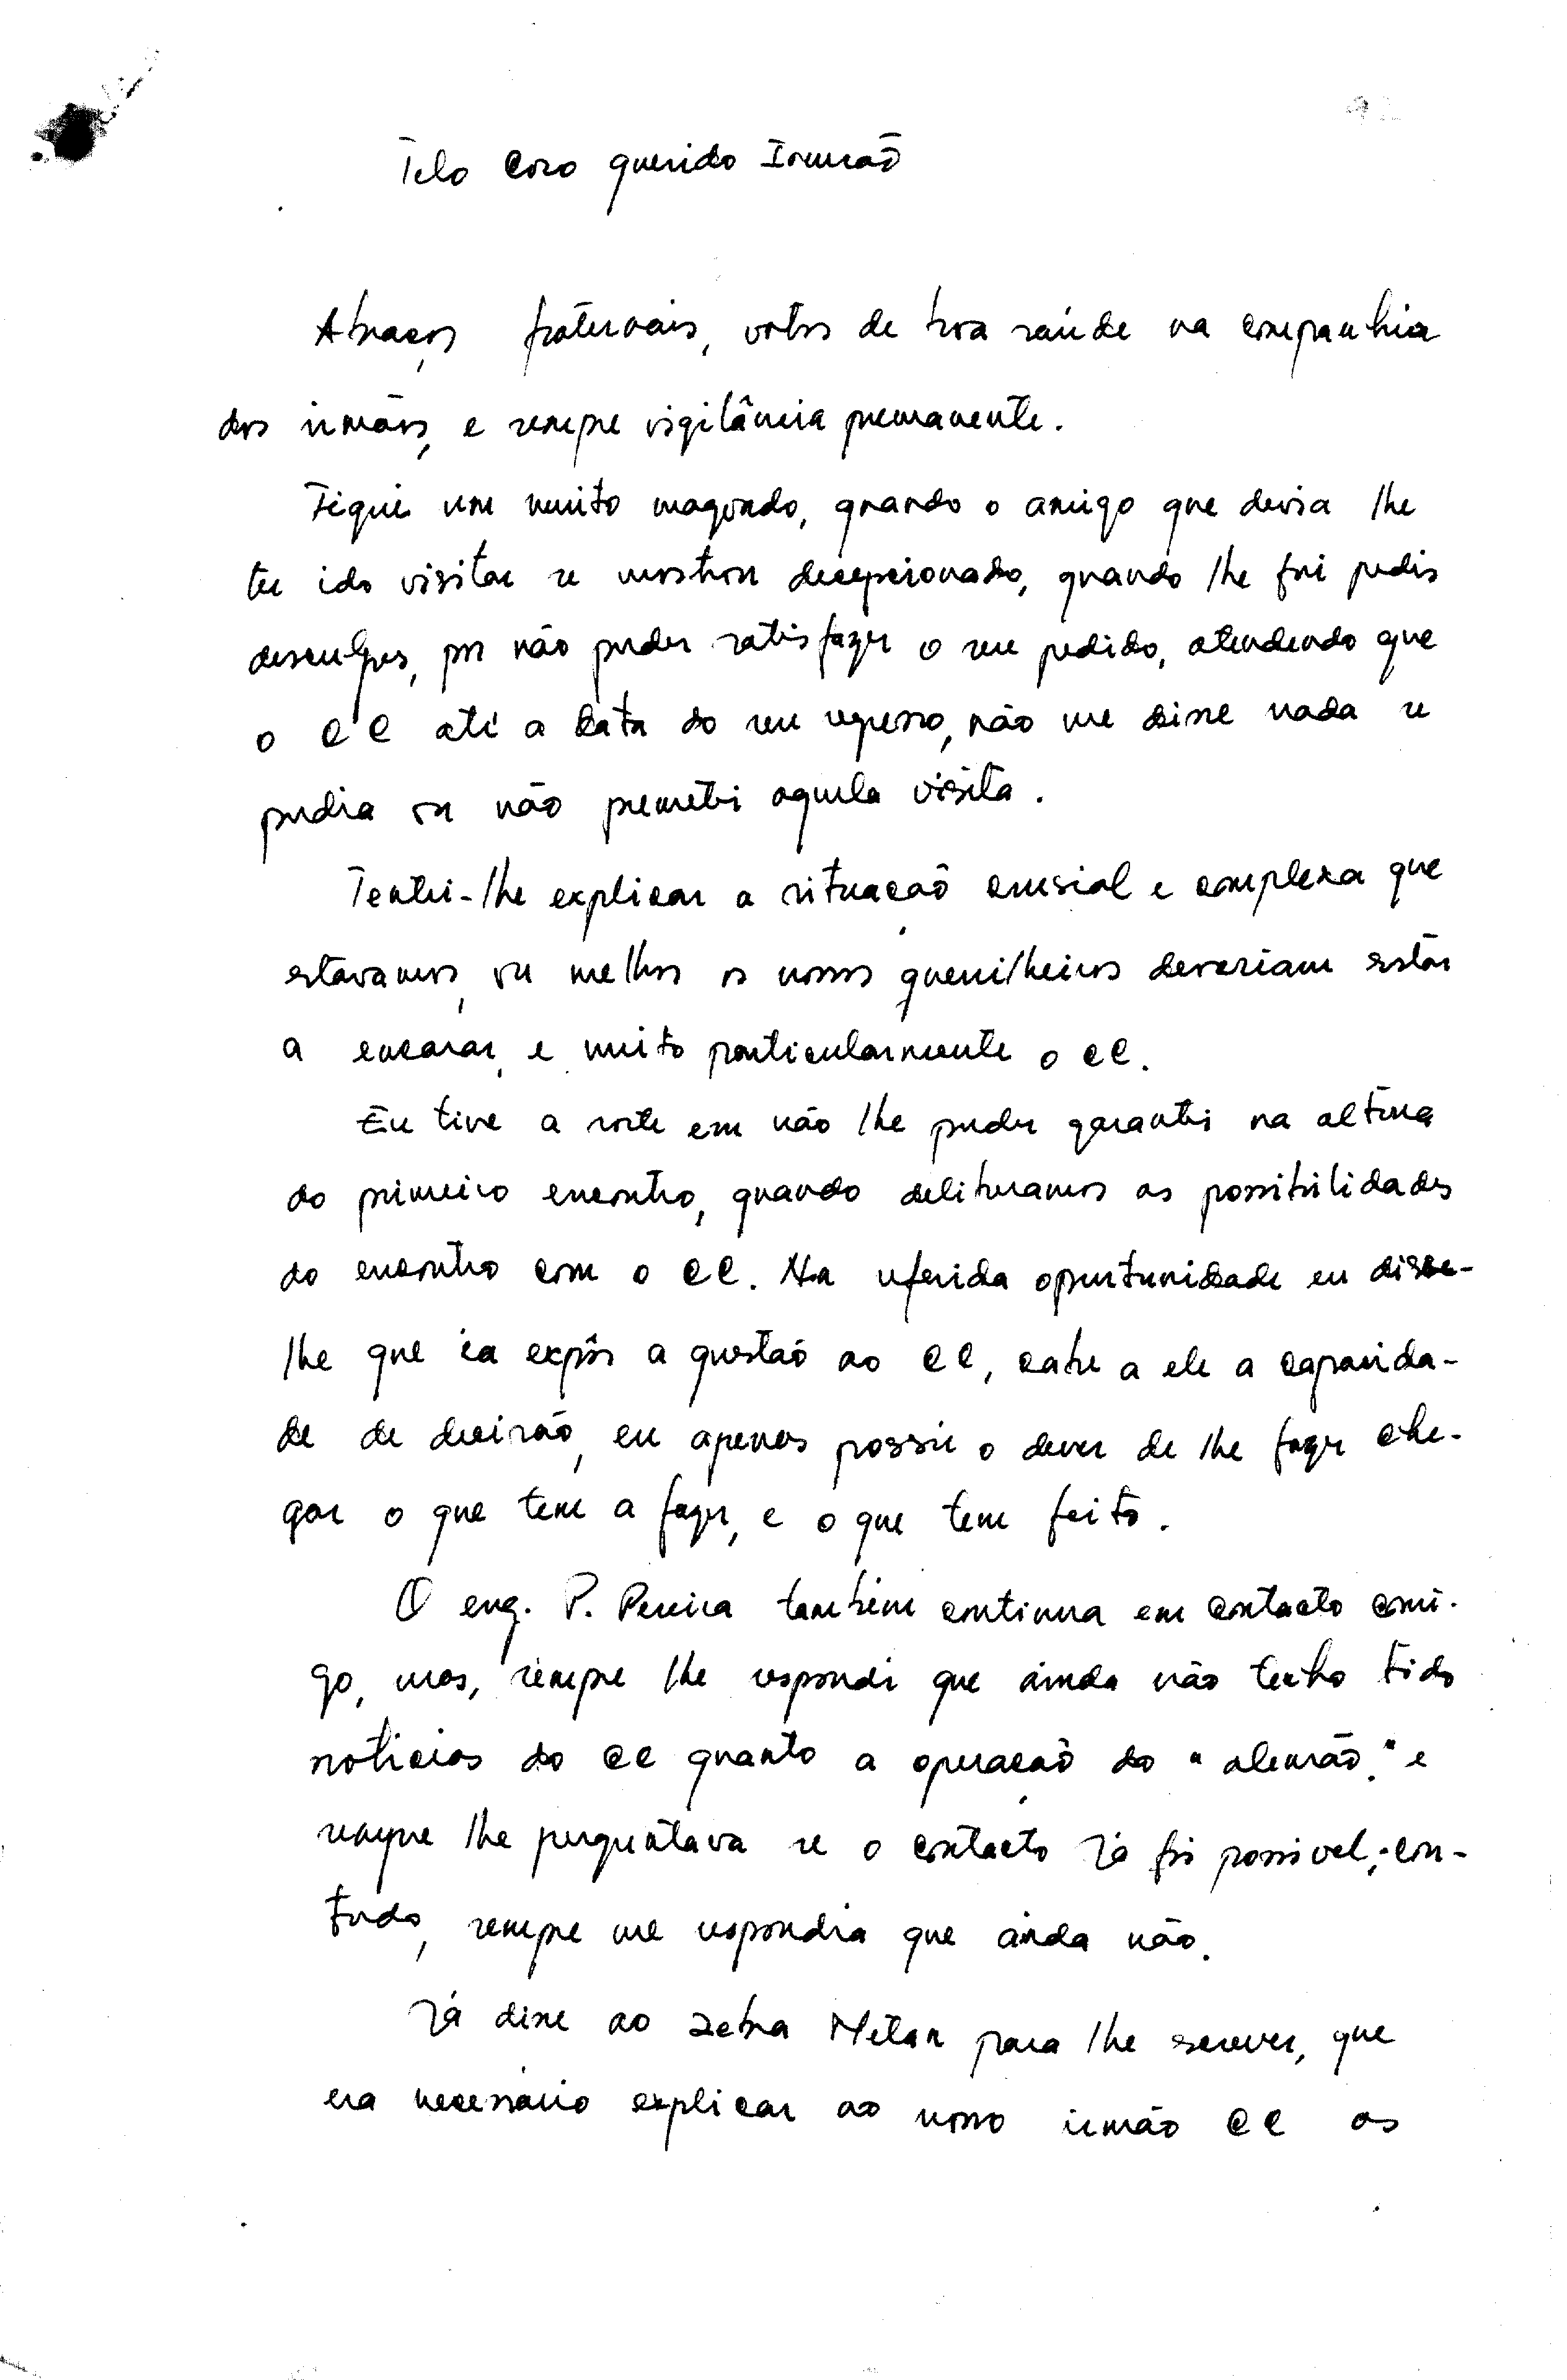 Telo Caro querido Irmão
Abraços fraternais, votos de boa saúde na companhia
dos irmãos, e sempre vigilância premanente.
Fiquei um muito magoado, quando o amigo que devia lhe
ter ido visitar se mostrou decepcionado, quando lhe fui pedir
desculpas, por não puder satisfazer o seu pedido, atendendo que
o CC até a data do seu regresso, não me disse nada se
pudia ou não premetir aquela visita.
Tentei-lhe explicar a situação crusial e complexa que
estavamos, ou melhor os nossos guerrilheiros deveriam estar
a encarar, e muito particularmente o CC.
Eu tive a sorte em não lhe puder garantir na altura
do primeiro encontro, quando deliberamos as possibilidades
do encontro com o CC. Na referida oportunidade eu disse-
lhe que ia expôr a questão ao CC, cabe a ele a capacida-
de de decisão, eu apenas possuo o dever de lhe fazer che-
gar o que tem a fazer, e o que tem feito.
O eng. P. Pereira também continua em contacto comi-
go, mas, sempre lhe respondi que ainda não tenho tido
noticias do CC quanto a operação do "alemão." e
sempre lhe perguntava se o contacto Já foi possivel, con-
tudo, sempre me respondia que ainda não.
Já disse ao Zebra Metan para lhe screver, que
era necessário explicar ao nosso irmão CC as